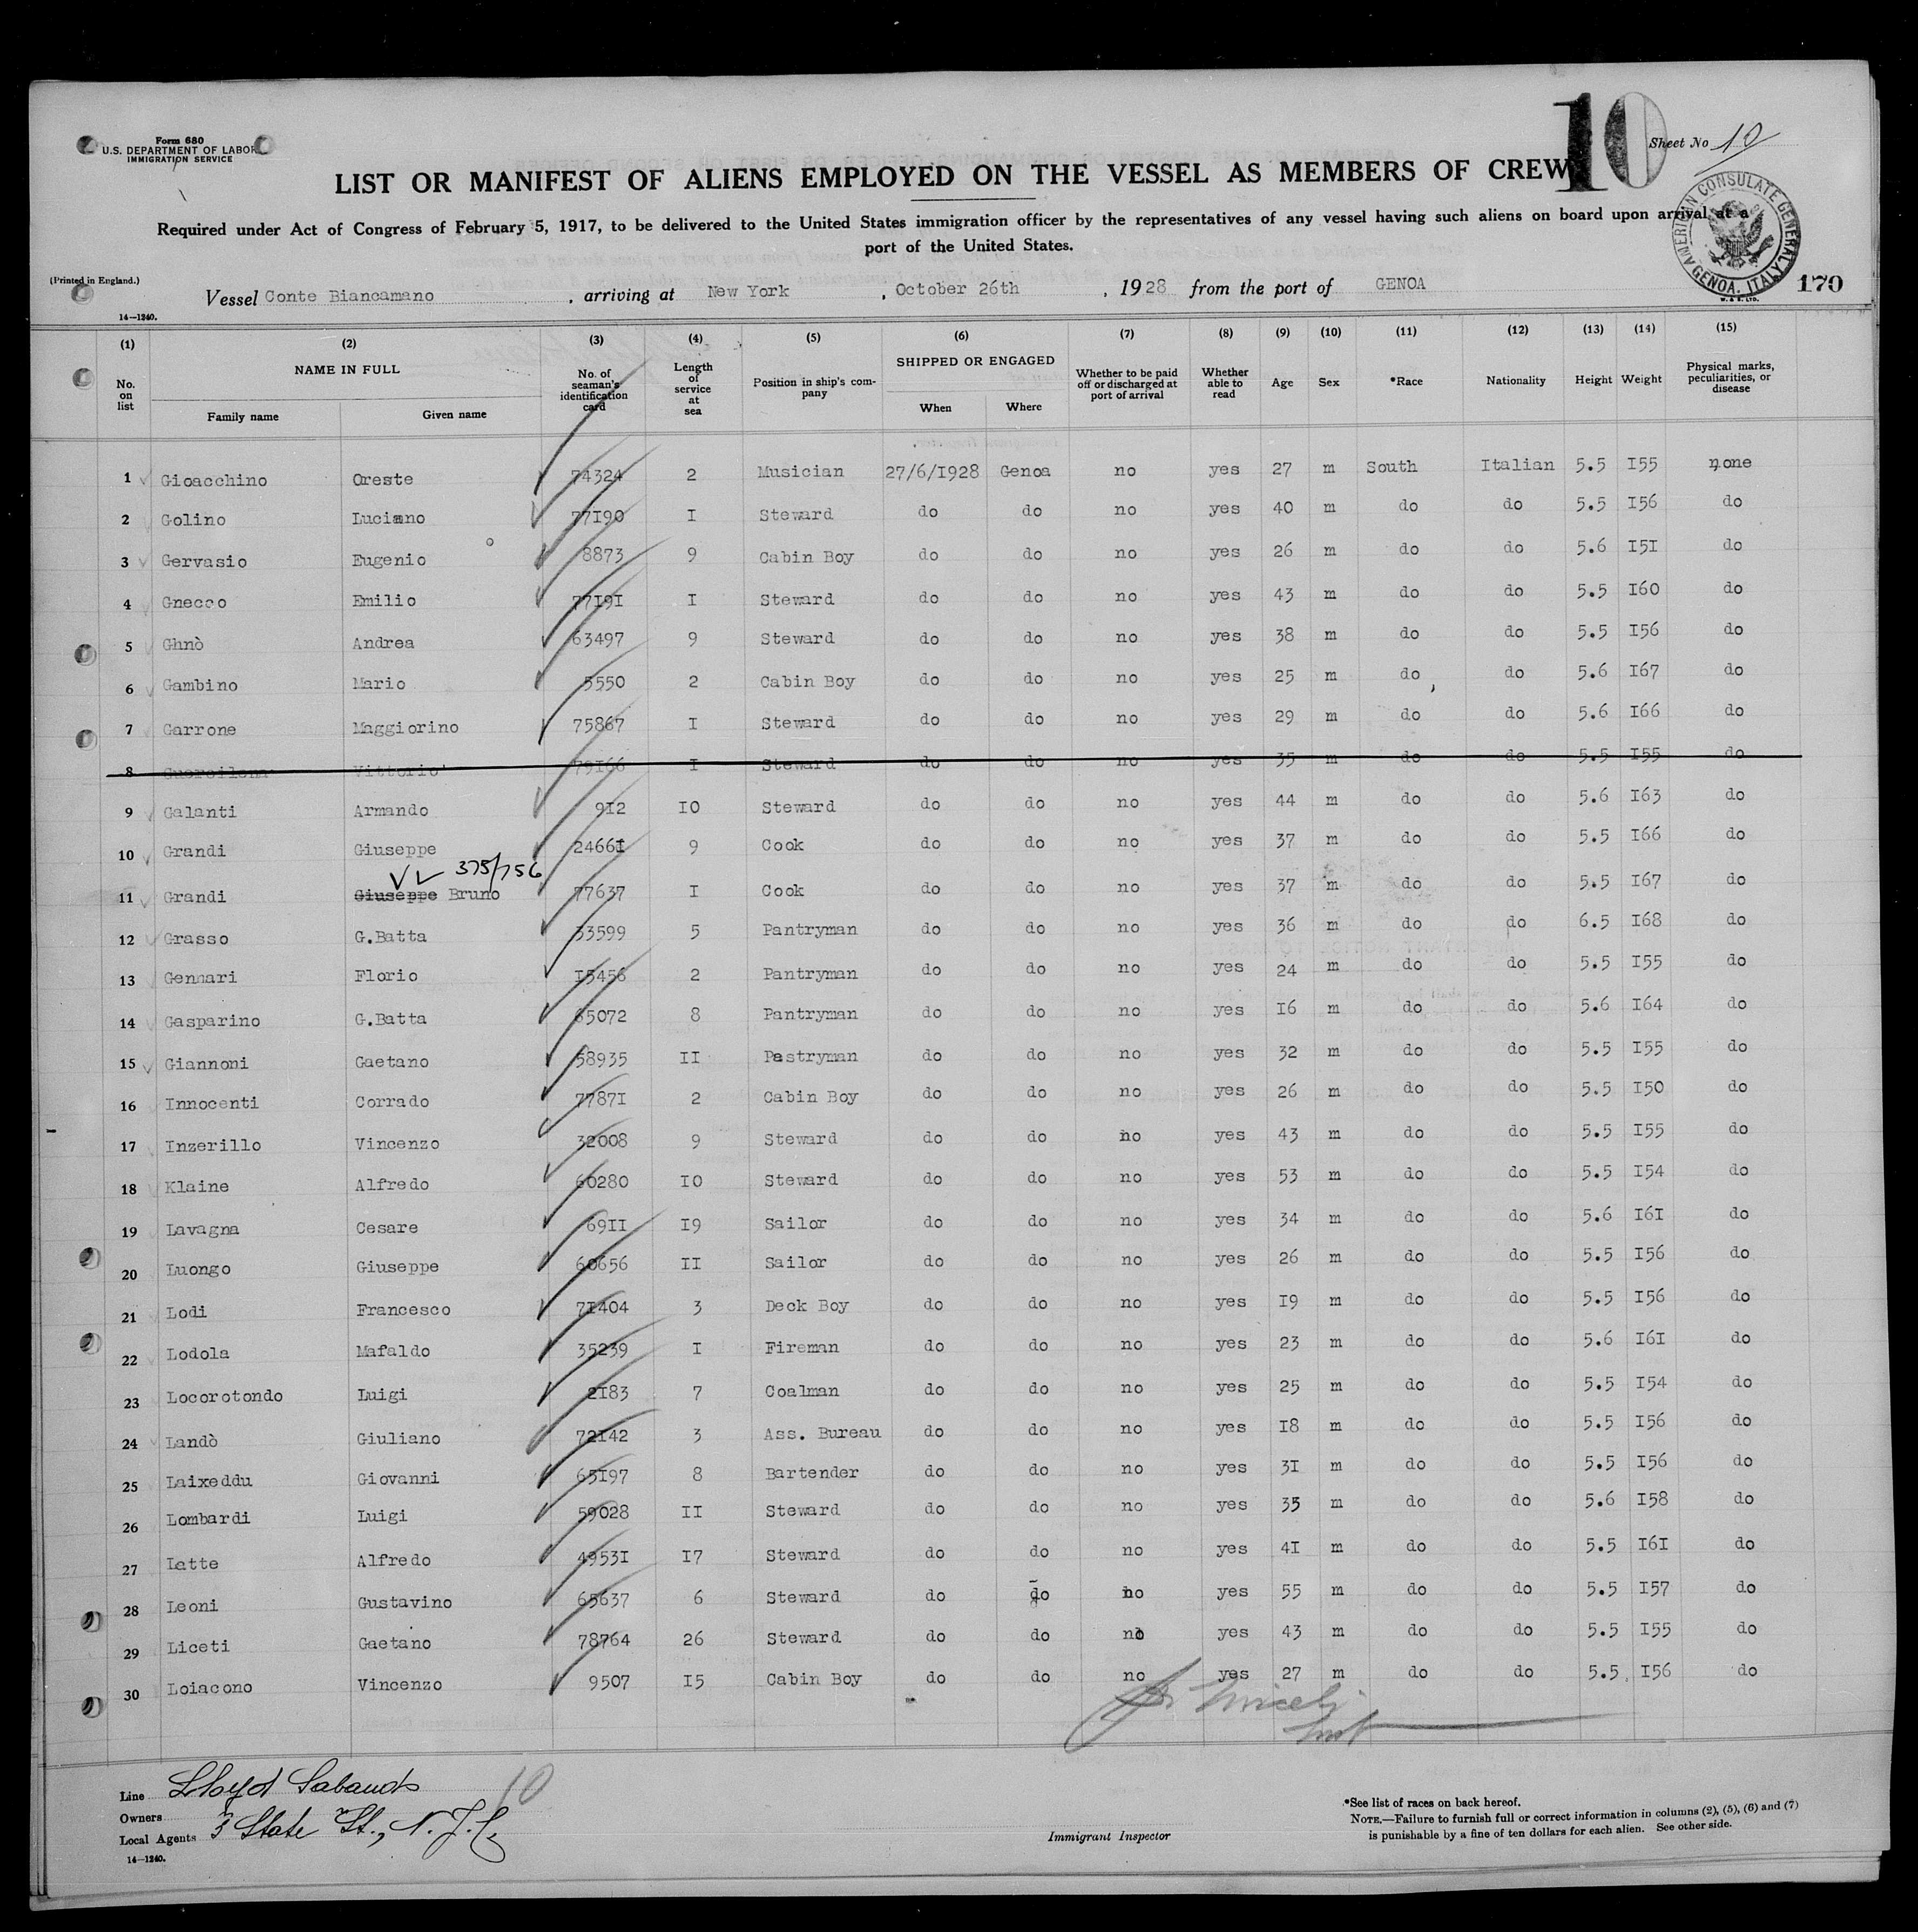 Form 680
U.S. DEPARTMENT OF LABOR
IMMIGRATION SERVICE
10
Sheet No 10
LIST OR MANIFEST OF ALIENS EMPLOYED ON THE VESSEL AS MEMBERS OF CREW
Required under Act of Congress of February 5, 1917, to be delivered to the United States immigration officer by the representatives of any vessel having such aliens on board upon arrival at a
port of the United States.
AMERICAN CONSULATE GENERAL
GENOA, ITALY
170
(Printed in England.)
Vessel Conte Biancamano, arriving at New York, October 26th, 1928 from the port of GENOA
14—1240.
(1) (2) (3) (4) (5) (6) (7) (8) (9) (10) (11) (12) (13) (14) (15)
No. on list NAME IN FULL Family name Given name No. of seaman's identification card Length of service at sea Position in ship's company SHIPPED OR ENGAGED When Where Whether to be paid off or discharged at port of arrival Whether able to read Age Sex *Race Nationality Height Weight Physical marks, peculiarities, or disease
1 Gioacchino Oreste 74324 2 Musician 27/6/1928 Genoa no yes 27 m South Italian 5.5 155 none
2 Golino Luciano 77190 I Steward do do no yes 40 m do do 5.5 156 do
3 Gervasio Eugenio 8873 9 Cabin Boy do do no yes 26 m do do 5.6 151 do
4 Gnecco Emilio 77191 I Steward do do no yes 43 m do do 5.5 160 do
5 Ghnò Andrea 63497 9 Steward do do no yes 38 m do do 5.5 156 do
6 Gambino Mario 5550 2 Cabin Boy do do no yes 25 m do do 5.6 167 do
7 Garrone Maggiorino 75867 I Steward do do no yes 29 m do do 5.6 166 do
8 Vittorio 79166 I Steward do do no yes 35 m do do 5.5 155 do
9 Galanti Armando 912 10 Steward do do no yes 44 m do do 5.6 163 do
10 Grandi Giuseppe 24661 9 Cook do do no yes 37 m do do 5.5 166 do
375/756
11 Grandi Giuseppe Bruno 77637 I Cook do do no yes 37 m do do 5.5 167 do
12 Grasso G.Batta 33599 5 Pantryman do do no yes 36 m do do 6.5 168 do
13 Gennari Florio 15456 2 Pantryman do do no yes 24 m do do 5.5 155 do
14 Gasparino G.Batta 65072 8 Pantryman do do no yes 16 m do do 5.6 164 do
15 Giannoni Gaetano 58935 II Pastryman do do no yes 32 m do do 5.5 155 do
16 Innocenti Corrado 77871 2 Cabin Boy do do no yes 26 m do do 5.5 150 do
17 Inzerillo Vincenzo 32008 9 Steward do do no yes 43 m do do 5.5 155 do
18 Klaine Alfredo 60280 10 Steward do do no yes 53 m do do 5.5 154 do
19 Lavagna Cesare 6911 19 Sailor do do no yes 34 m do do 5.6 161 do
20 Luongo Giuseppe 60656 II Sailor do do no yes 26 m do do 5.5 156 do
21 Lodi Francesco 71404 3 Deck Boy do do no yes 19 m do do 5.5 156 do
22 Lodola Mafaldo 35239 I Fireman do do no yes 23 m do do 5.6 161 do
23 Locorotondo Luigi 2183 7 Coalman do do no yes 25 m do do 5.5 154 do
24 Landò Giuliano 72142 3 Ass. Bureau do do no yes 18 m do do 5.5 156 do
25 Laixeddu Giovanni 65197 8 Bartender do do no yes 31 m do do 5.5 156 do
26 Lombardi Luigi 59028 II Steward do do no yes 35 m do do 5.6 158 do
27 Latte Alfredo 49531 17 Steward do do no yes 41 m do do 5.5 161 do
28 Leoni Gustavino 65637 6 Steward do do no yes 55 m do do 5.5 157 do
29 Liceti Gaetano 78764 26 Steward do do no yes 43 m do do 5.5 155 do
30 Loiacono Vincenzo 9507 15 Cabin Boy do do no yes 27 m do do 5.5 156 do
Line Lloyd Sabaudo 10
Owners
Local Agents 3 State St., N.Y.C.
14—1240.
Immigrant Inspector
*See list of races on back hereof.
NOTE.—Failure to furnish full or correct information in columns (2), (5), (6) and (7)
is punishable by a fine of ten dollars for each alien. See other side.